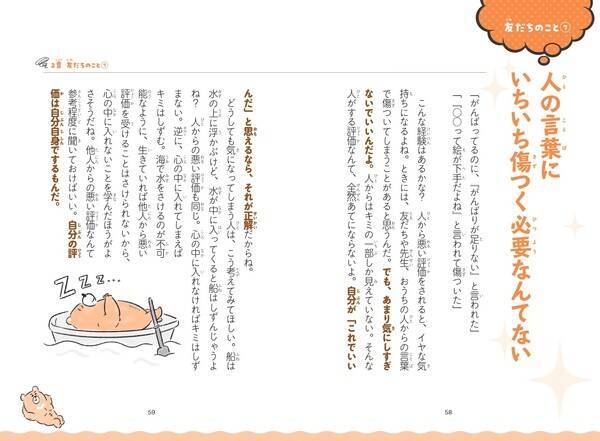 友だちのこと⑦
人の言葉に
いちいち傷つく必要なんてない
「がんばってるのに、「がんばりが足りない」と言われた」
「「〇〇って絵が下手だよね」と言われて傷ついた」
こんな経験はあるかな? 人から悪い評価をされると、イヤな気
持ちになるよね。ときには、友だちや先生、おうちの人からの言葉
で傷ついてしまうことがあると思うんだ。でも、あまり気にしすぎ
ないでいいんだよ。人からはキミの一部しか見えていない。そんな
人がする評価なんて、全然あてにならないよ。自分が「これでいい
58
2章 友だちのこと⑦
んだ」と思えるなら、それが正解だからね。
どうしても気になってしまう人は、こう考えてみてほしい。船は
水の上に浮かぶけど、水が中に入ってくると船はしずんじゃうよ
ね? 人からの悪い評価も同じ。心の中に入れなければキミはしず
まない。逆に、心の中に入れてしまえば
キミはしずむ。海で水をさけるのが不可
能なように、生きていれば他人から悪い
評価を受けることはさけられないから、
心の中に入れないことを学んだほうがよ
さそうだね。他人からの悪い評価なんて
参考程度に聞いておけばいい。自分の評
価は自分自身でするもんだ。
ZZZ...
59